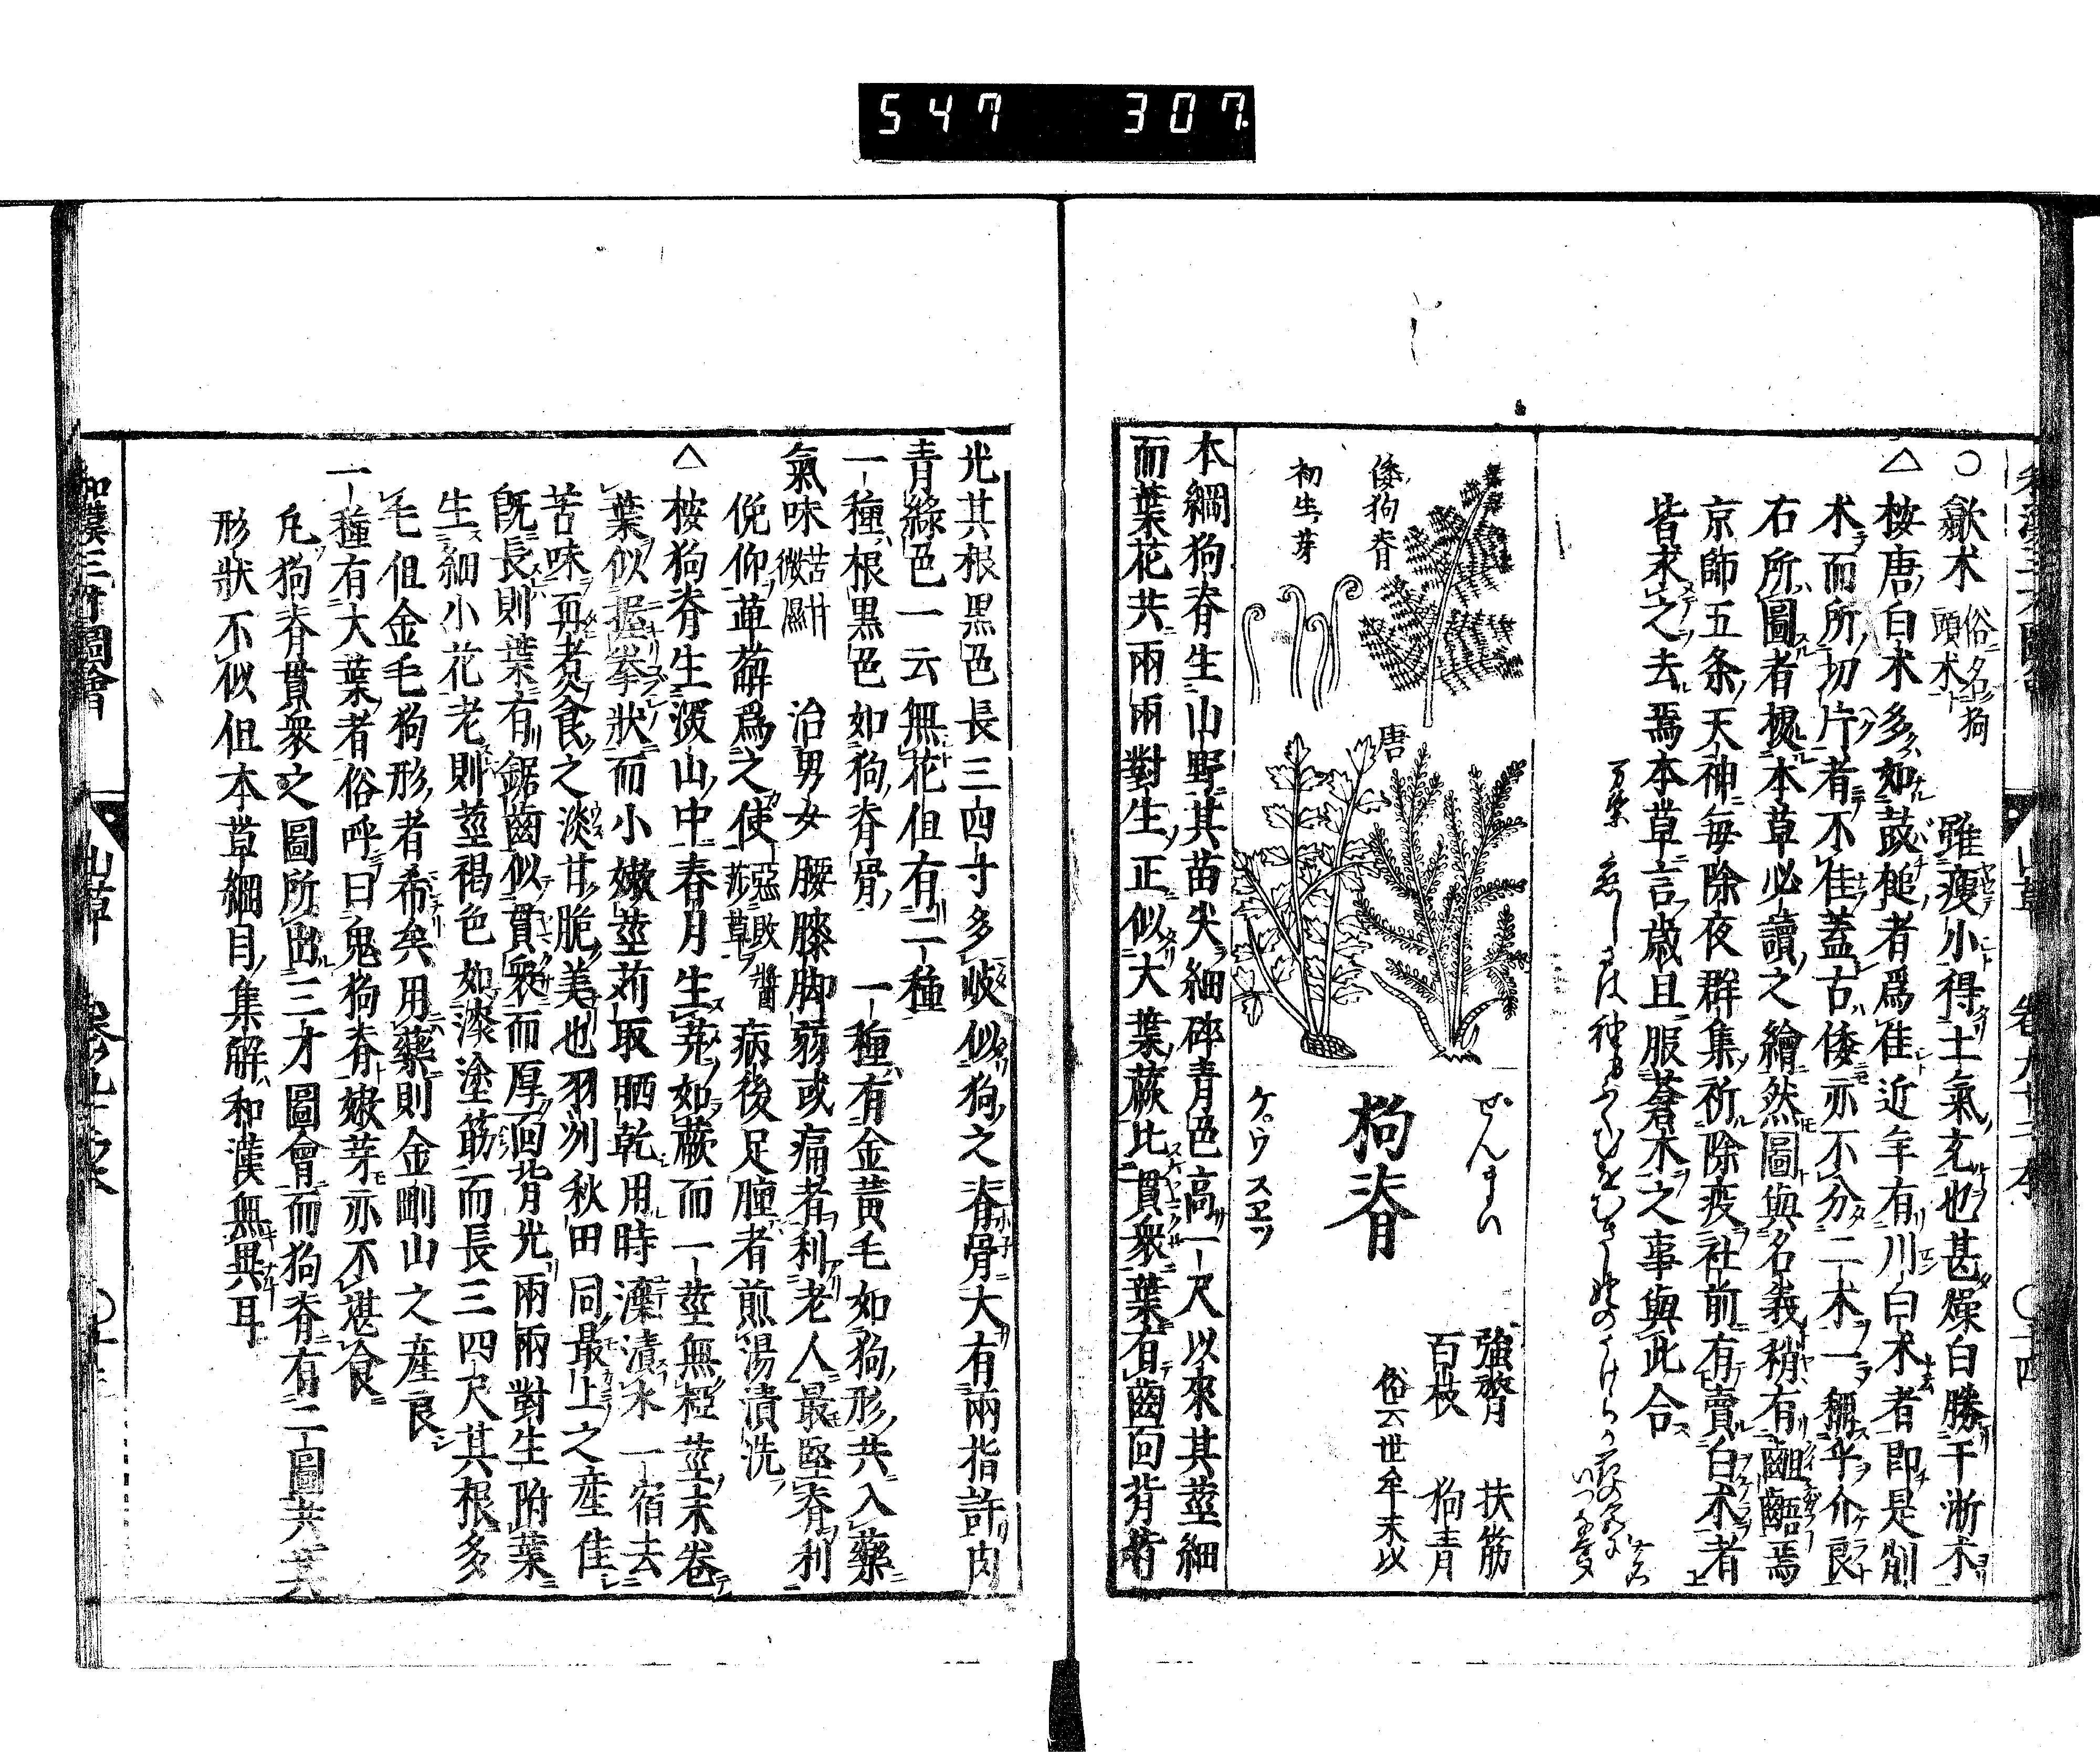 547 307
○歛术 俗名狗頭术 雖瘦小得土氣充也甚燥白勝于淅术
△桉唐白术多如鼓槌者爲佳近年有川白术者即是削
术而所切片者不佳蓋古倭亦不分二术一稱乎介良
右所圖者棿本草必讀之繪然圖與名義稍有齟齬焉
京師五条天神毎除夜群集祈除疫社前有賣白术者
皆求之去焉本草言歳旦服蒼术之事與此合
倭狗脊
初生芽
唐
ぜんまい
狗脊
ケ゚ウ スエツ
強膂 扶筋
百枝 狗青
俗云世牟末以
本綱狗脊生山野其苗尖細碎青色高一尺以來其莖細
而葉花共兩兩對生正似大葉蕨比貫衆葉有齒面背皆
光其根黒色長三四寸多岐似狗之脊骨大有兩指許肉
青綠色一云無花但有二種
一種根黒色如狗脊骨 一種有金黄毛如狗形共入藥
氣味 苦甘微濕 治男女腰膝脚弱或痛者利老人最堅脊利
俛仰萆薢爲之使 惡敗醬莎草 病後足腫者煎湯漬洗
△桉狗脊生深山中春月生芽如蕨而一莖無椏莖末卷
葉似握拳狀而小嫩莖苅取晒乾用時濼漬水一宿去
苦味再煮食之淡甘脆美也羽州秋田同最上之産佳
既長則葉有鋸齒似貫衆而厚面背光兩兩對生附葉
生細小花老則莖褐色如漆塗筋而長三四尺其根多
毛但金毛狗形者希矣用藥則金剛山之産良
一種有大葉者俗呼曰鬼狗脊嫩芽亦不堪食
凡狗脊貫衆之圖所出三才圖會而狗脊有二圖共其
形狀不似但本草綱目集解和漢無異耳
和漢三才圖會 山草 卷九十二